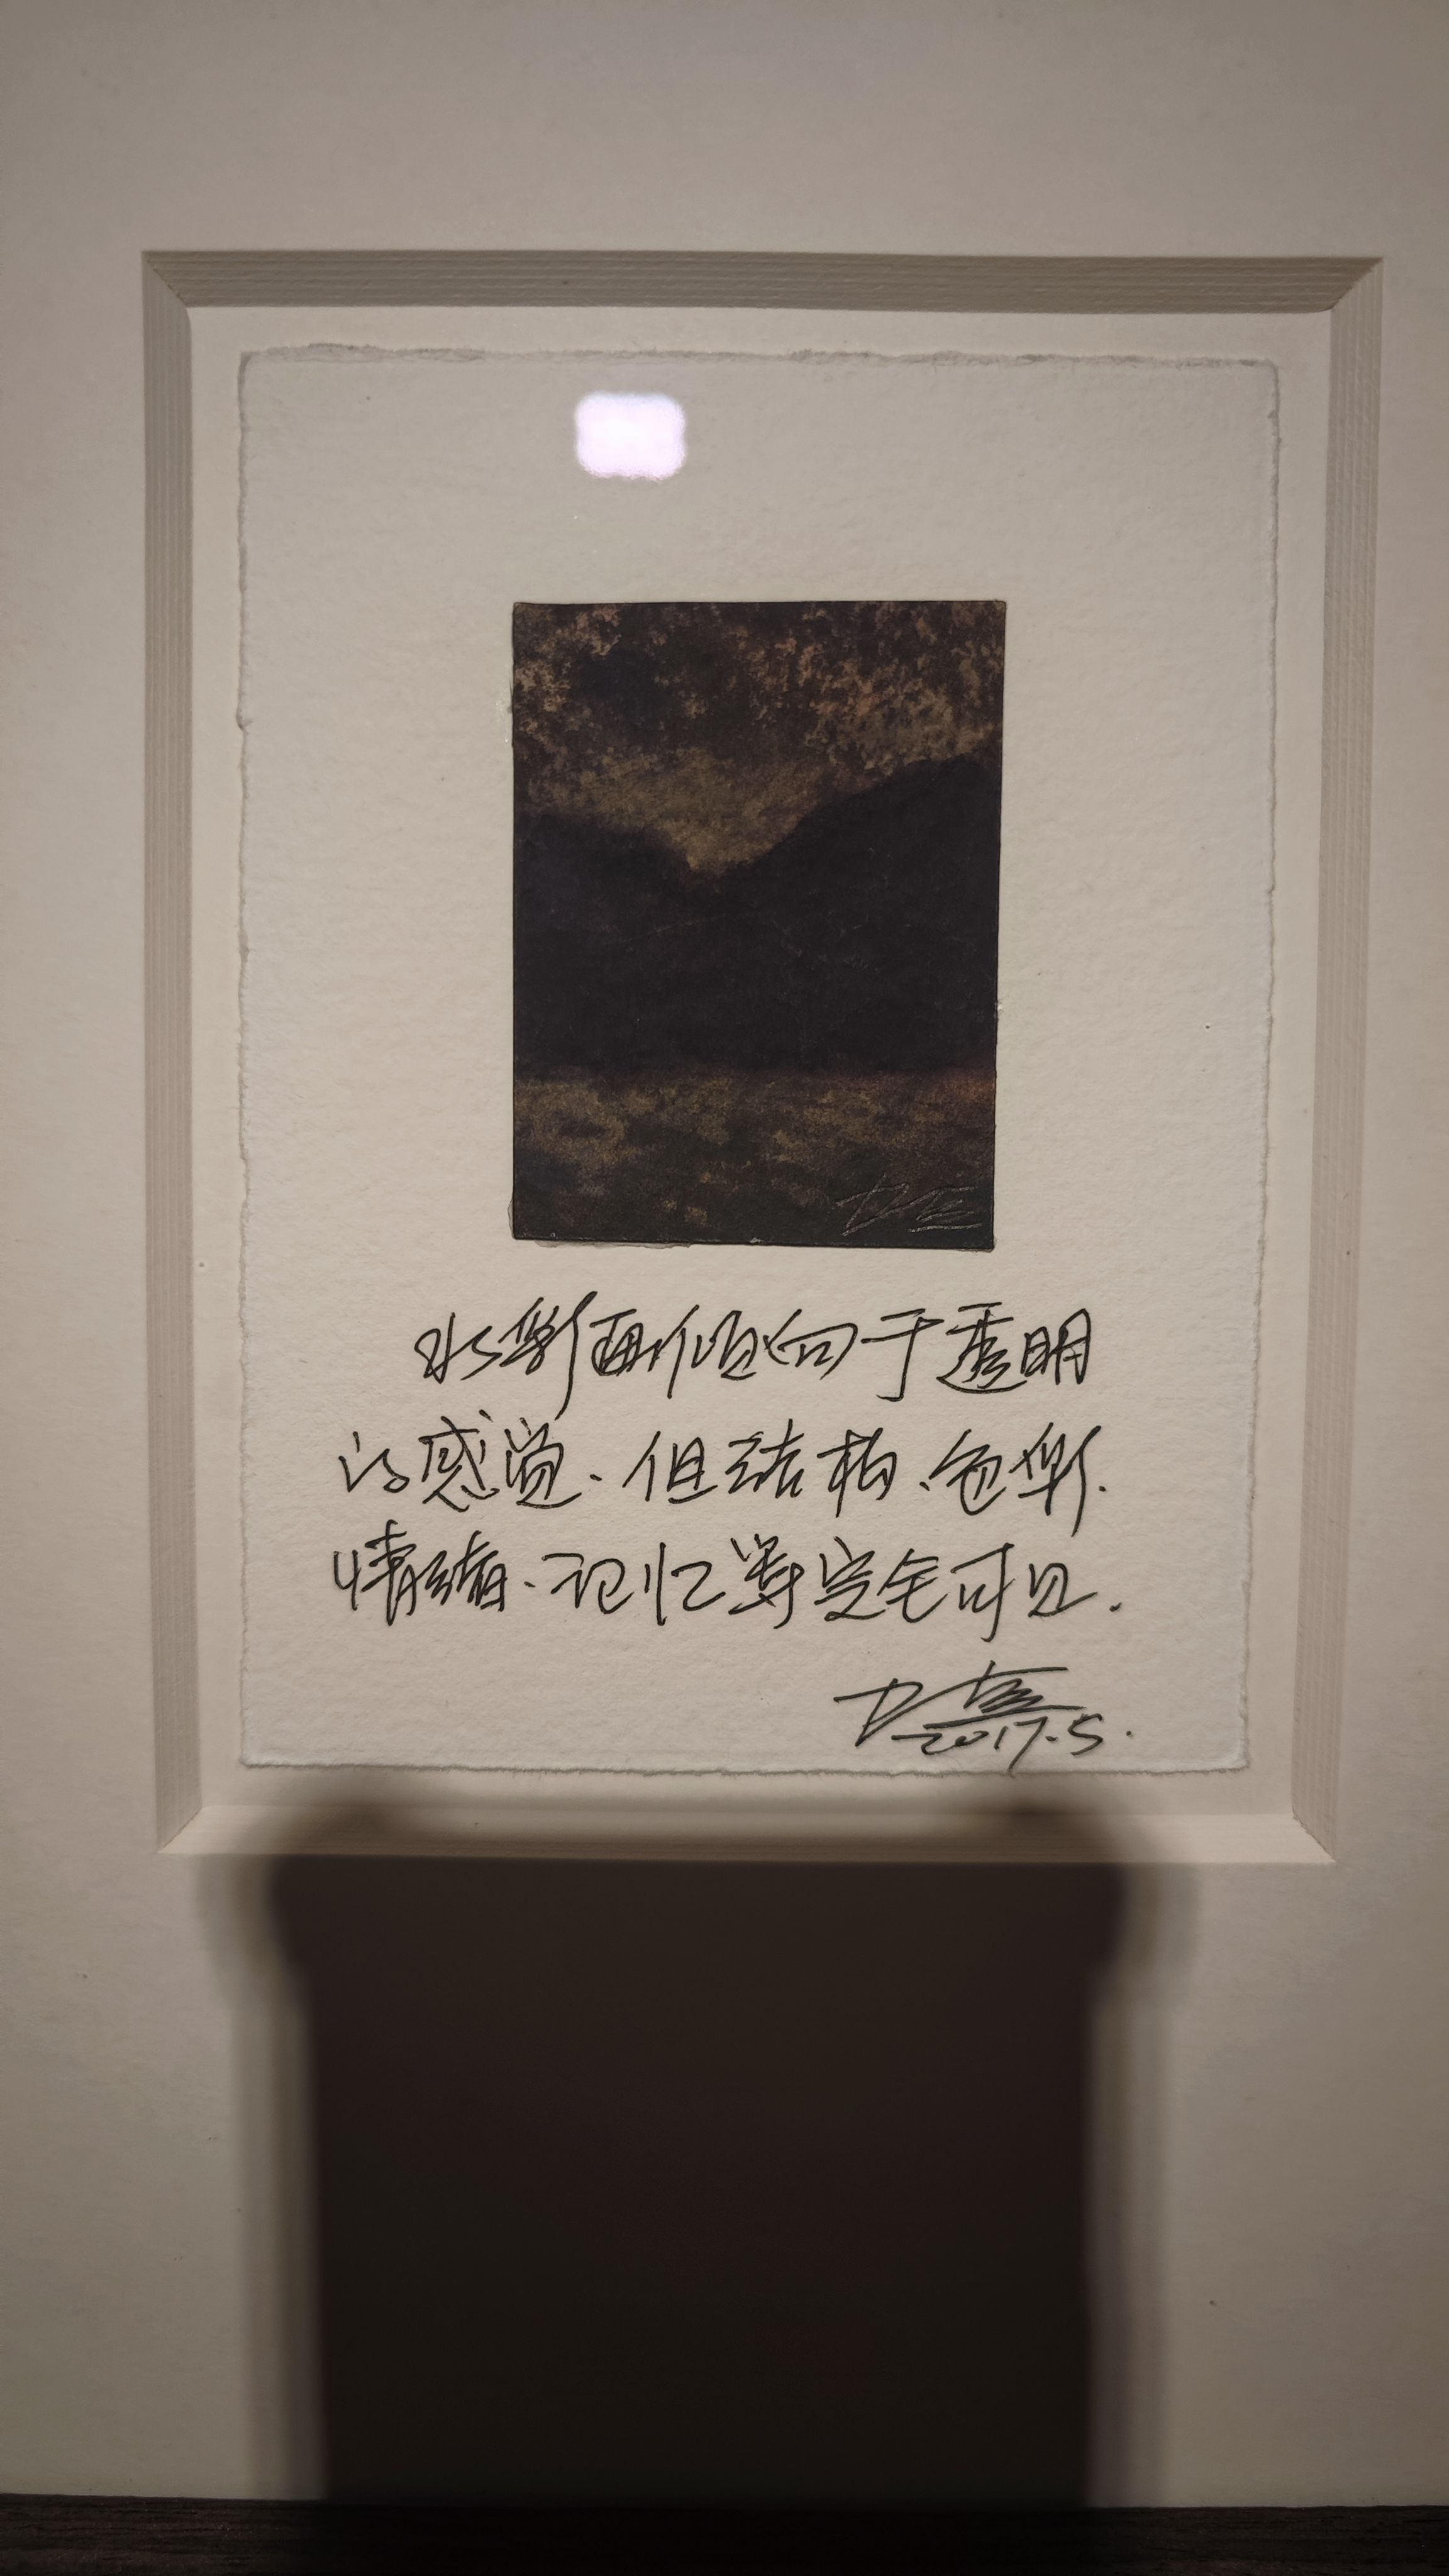 水彩画倾向于透明
的感觉、但结构、色彩、
情绪、记忆等完全可见.
2017.5.